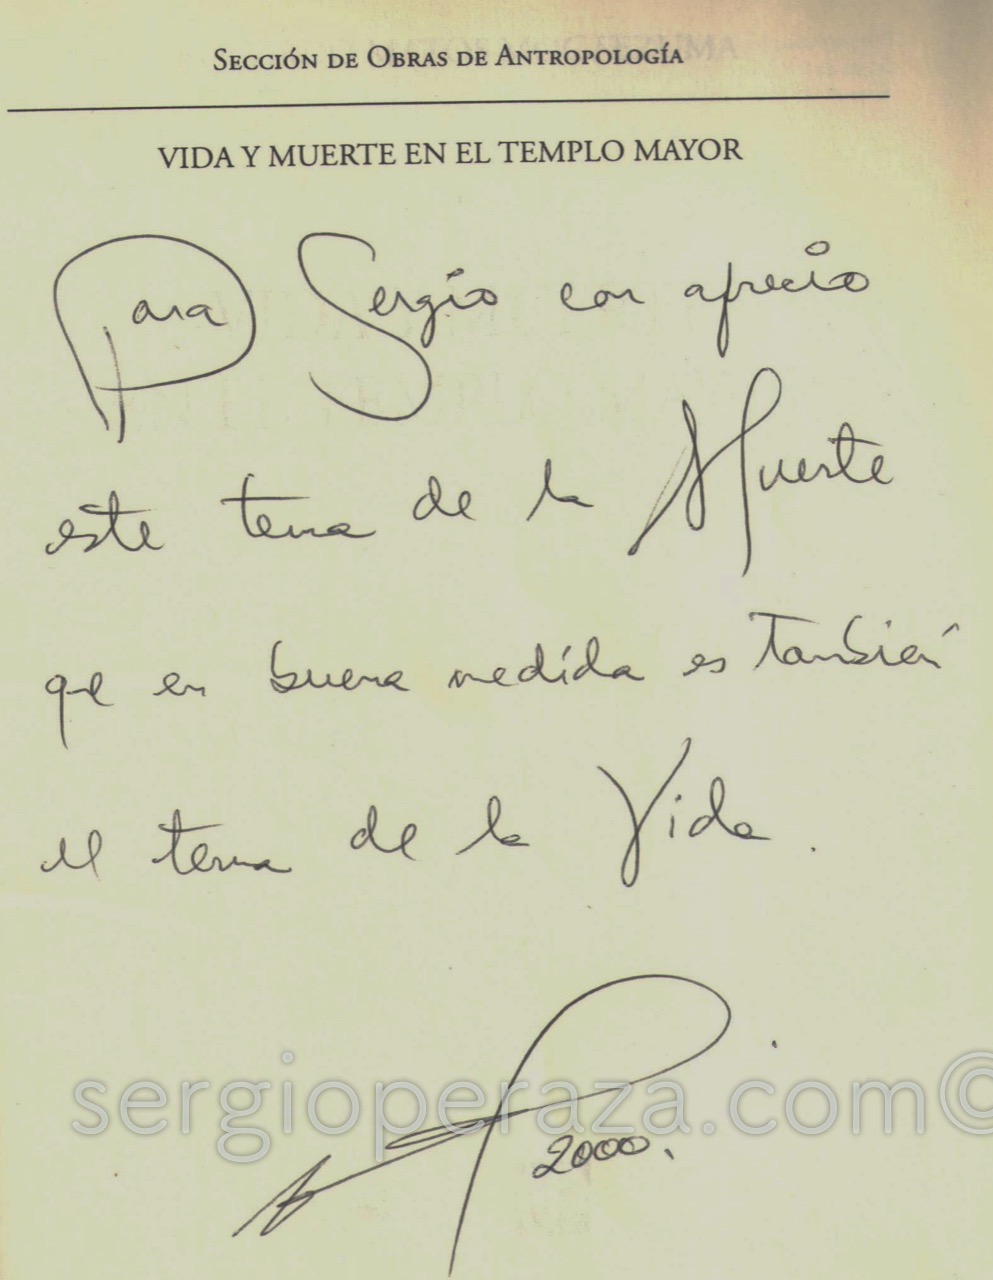 SECCIÓN DE OBRAS DE ANTROPOLOGÍA
VIDA Y MUERTE EN EL TEMPLO MAYOR
Para Sergio con aprecio
este tema de la Muerte
que en buena medida es también
el tema de la Vida.
sergioperaza.com©
2000.